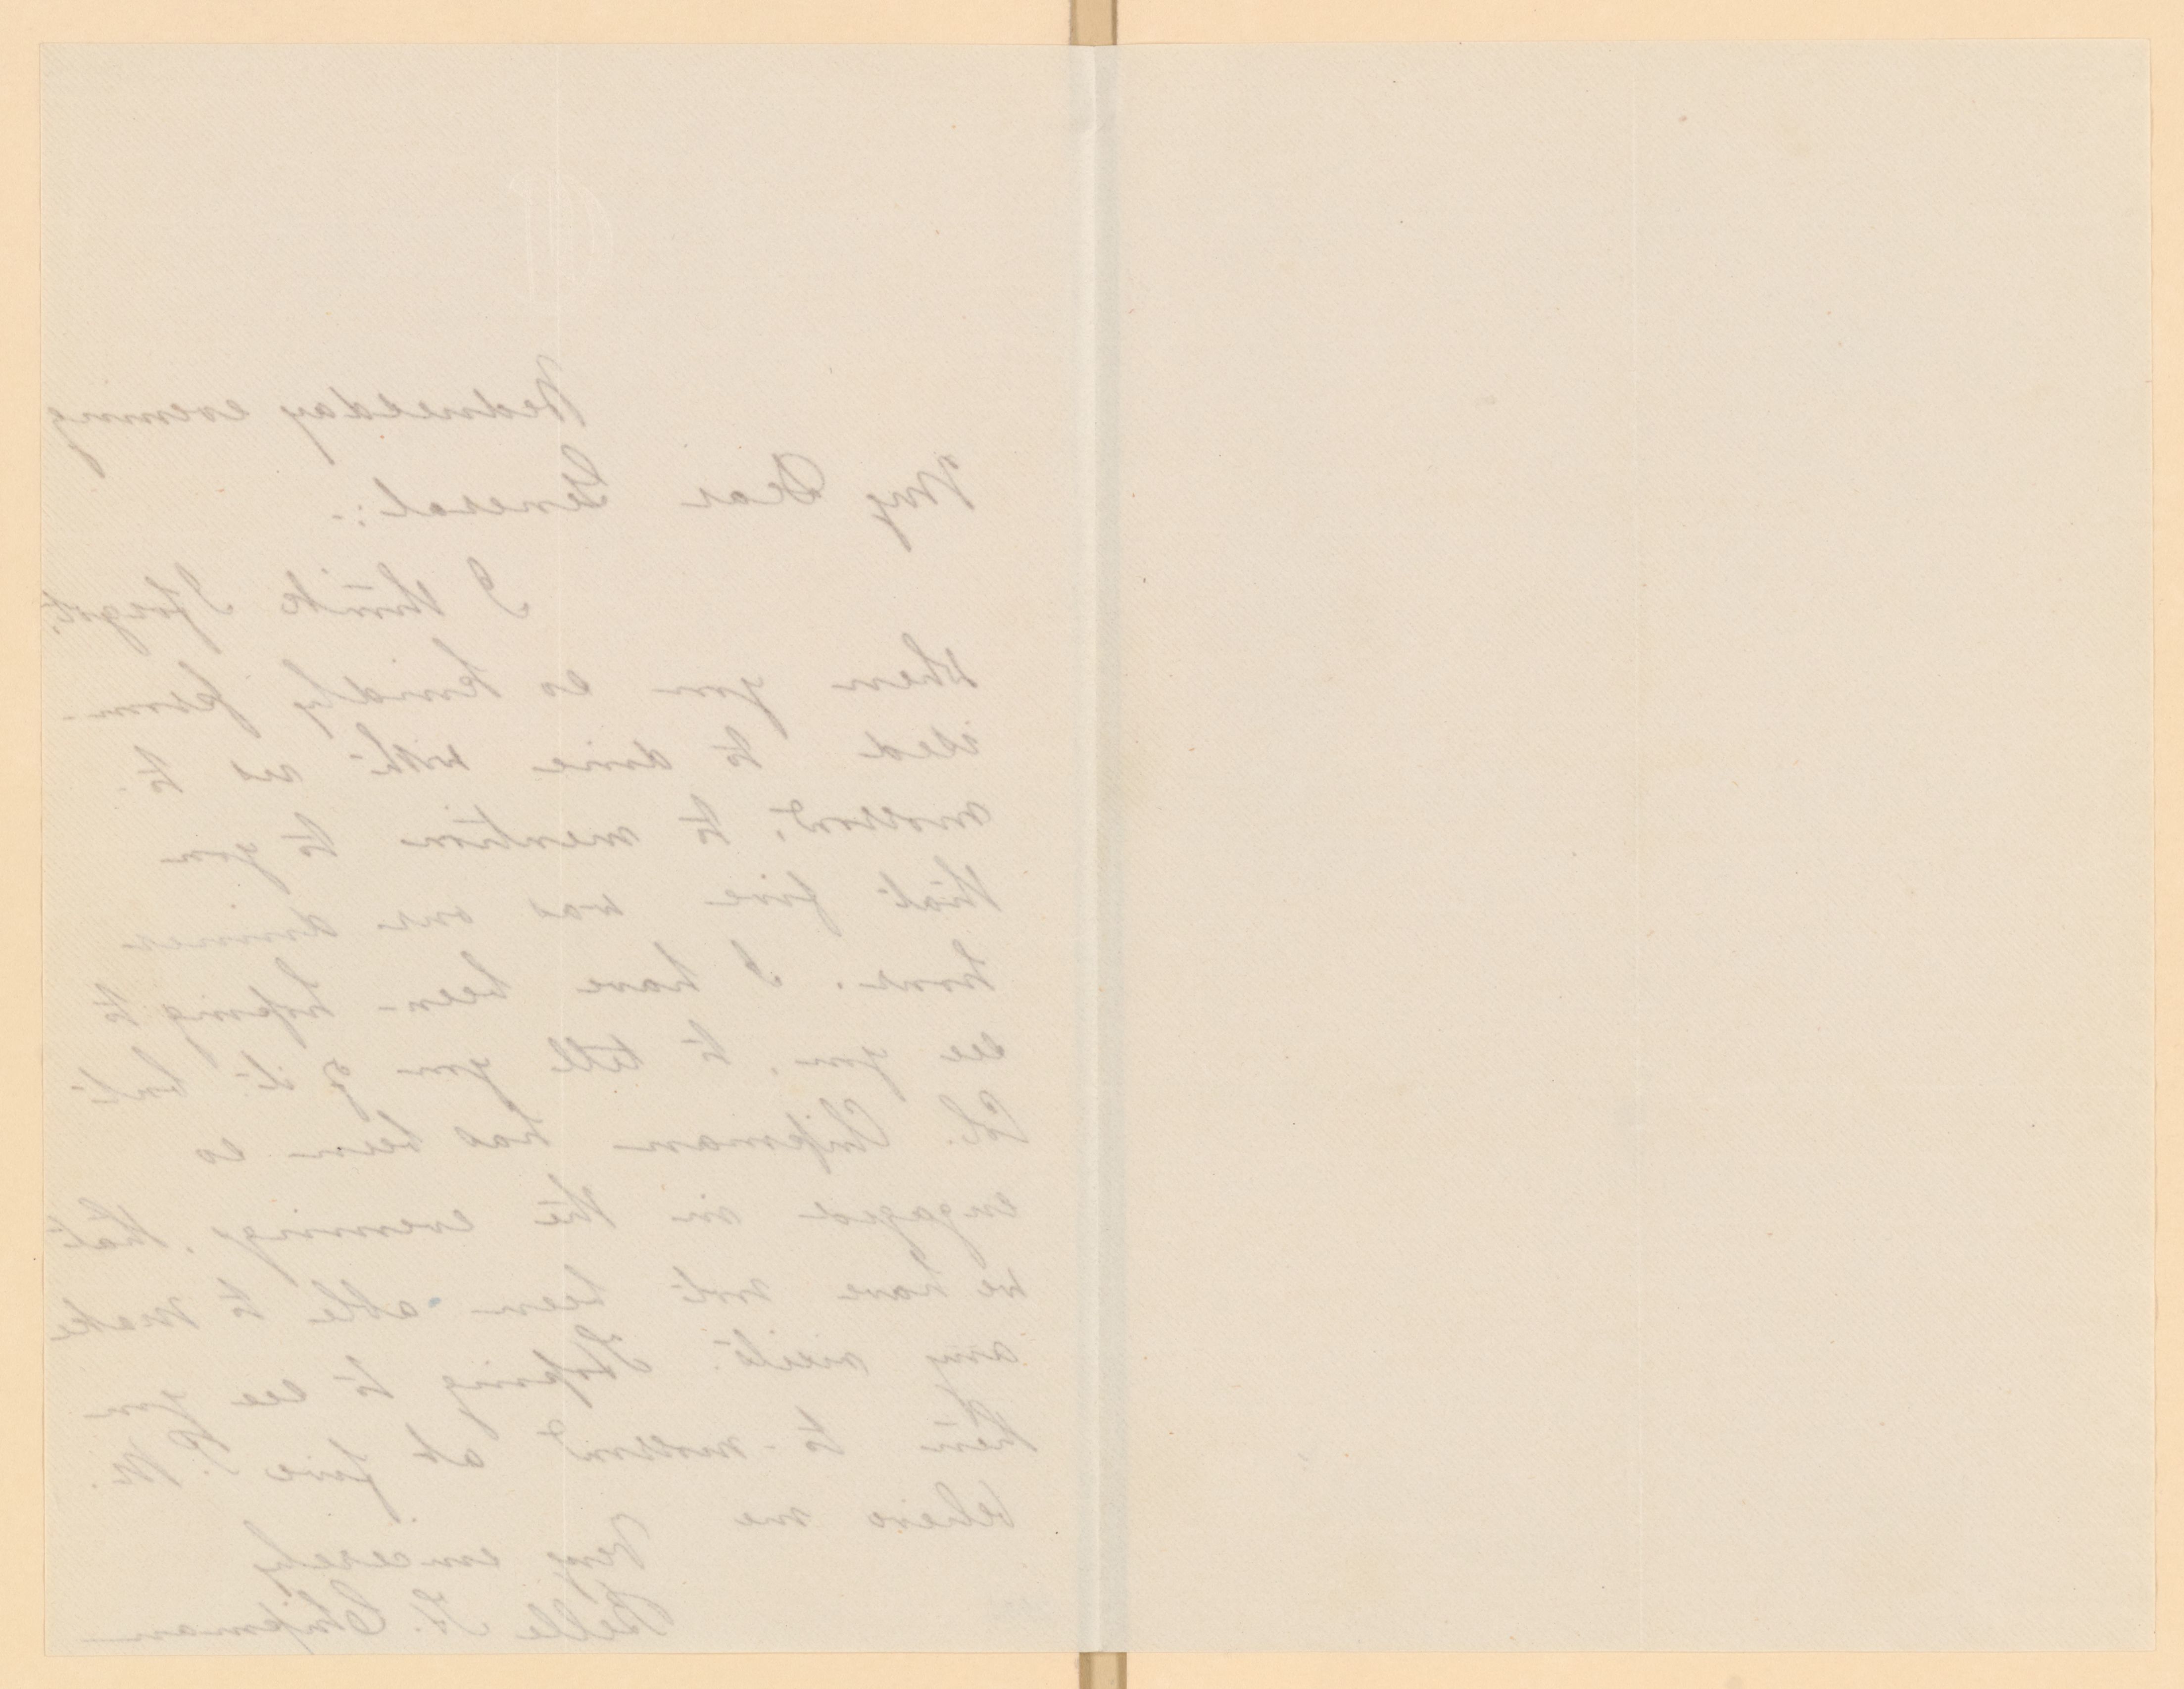 Wednesday evening
My Dear General:-
I think I forgot,
when you so kindly prom-
ised to dine with us to-
morrow, to mention to you
that five was our dinner
hour. I have been hoping to
see you, to tell you of it but
Col. Chipman has been so
engaged in the evenings, that
we have not been able to make
any visits. Hoping to see you
then to-morrow at five P. M.
believe me
Very sincerely
Belle H. Chipman